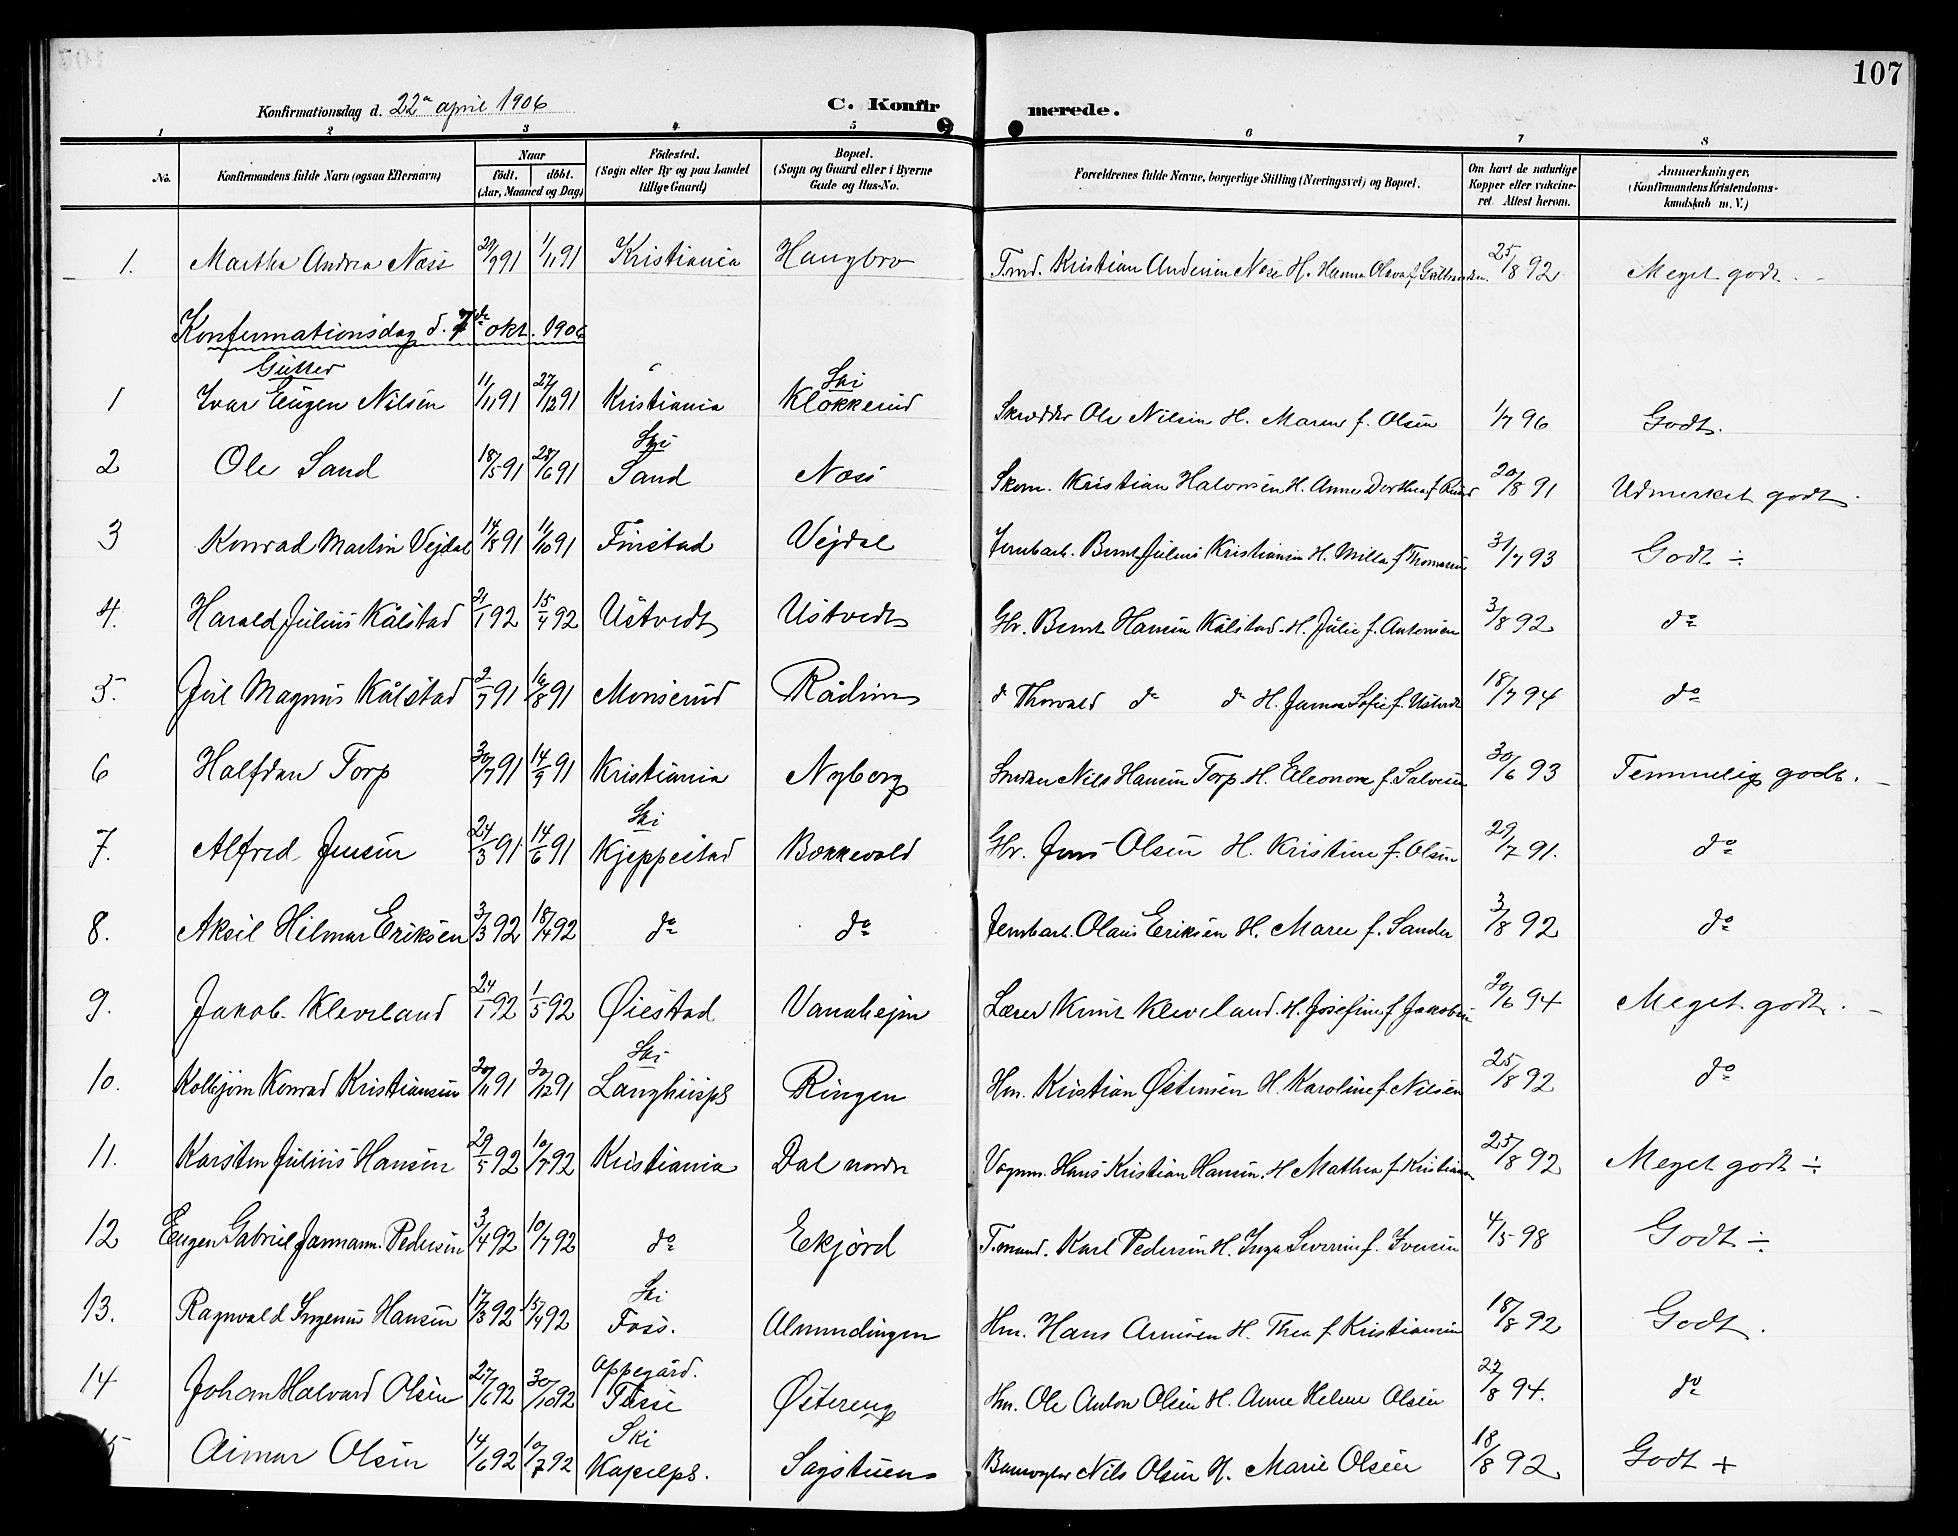 107
Konfirmationsdag d. 22de april 1906 C. Konfirmerede.
1 2 3 4 5 6 7 8
No. Konfirmandens fulde Navn (ogsaa Efternavn) Naar födt. döbt. (Aar, Maaned og Dag) Födested. (Sogn eller By og paa Landet tillige Gaard) Bopæl. (Sogn og Gaard eller i Byerne Gade og Hus-No. Forældrenes fulde Navne, borgerlige Stilling (Næringsvei) og Bopæl. Om havt de naturlige Kopper eller vakcineret. Attest herom. Anmærkninger. (Konfirmandens Kristendomskundskab m. V.)
1. Martha Andrea Næss 29/9 91 1/11 91 Kristiania Haugbro Tmd. Kristian Andersen Næss H. Hanna Olava f. 25/8 92 Meget godt.
Konfirmationsdag d. 7de okt. 1906
Gutter
1 Ivar Eugen Nilsen 11/11 91 27/12 91 Kristiania Ski Klokkerud Skrædder Ole Nilsen H. Maren f. Olsen 1/7 96 Godt.
2 Ole Sand 18/5 91 28/6 91 Ski Sand Næss Skom. Kristian Halvorsen H. Anne Dorthea f. 20/8 91 Udmerket godt.
3 Konrad Martin Vejdal 14/8 91 11/10 91 Finstad Vejdal Jernbarb. Bernt Julius Kristiansen H. Milla f. Thomasen 31/7 93 Godt ÷
4. Harald Julius Kålstad 21/1 92 15/4 92 Ustvedt Ustvedt Gbr. Bernt Hansen Kålstad H. Julie f. Antonsen 3/8 92 do
5. Juel Magnus Kålstad 2/7 91 16/8 91 Monserud Rådim d Thorvald do do H. Janna Sofie f. Ustvedt 18/7 94 do
6 Halfdan Torp 30/7 91 14/9 91 Kristiania Nyborg Nils Hansen Torp H. Eleonora f. Salvesen 30/6 93 Temmelig godt.
7. Alfred Jensen 24/3 91 14/6 91 Ski Kjeppestad Bækkevold Gbr. Jens Olsen H. Kristine f. Olsen 29/7 91. do
8. Aksil Hilmar Eriksen 3/3 92 18/4 92 do do Jernbarb. Olaus Eriksen H. Maren f. Sander 3/8 92 do
9. Jakob Kleveland 24/1 92 1/5 92 Øiestad Vanahejm Lærer Knut Kleveland H. Josefine f. Jakobsen 20/6 94 Meget godt.
10. Kolbjørn Konrad Kristiansen 20/11 91 20/12 91 Ski Langhuspl Ringen Hm. Kristian Østensen H. Karoline f. Nilsen 25/8 92 do
11. Karsten Julius Hansen 29/5 92 10/7 92 Kristiania Dal nordre Vognm. Hans Kristian Hansen H. Mathea f. Kristiansen 25/8 92 Meget godt ÷
12 Eugen Gabriel Jarmann Pedersen 3/4 92 10/7 92 do Ekjörd Tmand. Karl Pedersen H. Inga Severine f. Iversen 4/5 98 Godt ÷
13. Ragnvald Ingenius Hansen 17/3 92 15/4 92 Ski Foss. Almendingen Hm. Hans Arnesen H. Thea f. Kristiansen 18/8 92 Godt.
14 Johan Halvard Olsen 27/6 92 30/10 92 Oppegård. Tusse Østereng Hm. Ole Anton Olsen H. Anne Helene Olsen 22/8 94. do
15 Aimar Olsen 14/6 92 10/7 92 Ski Kapelpl. Sagstuen Banevogter Nils Olsen H. Marie Olsen 18/8 92 Godt +